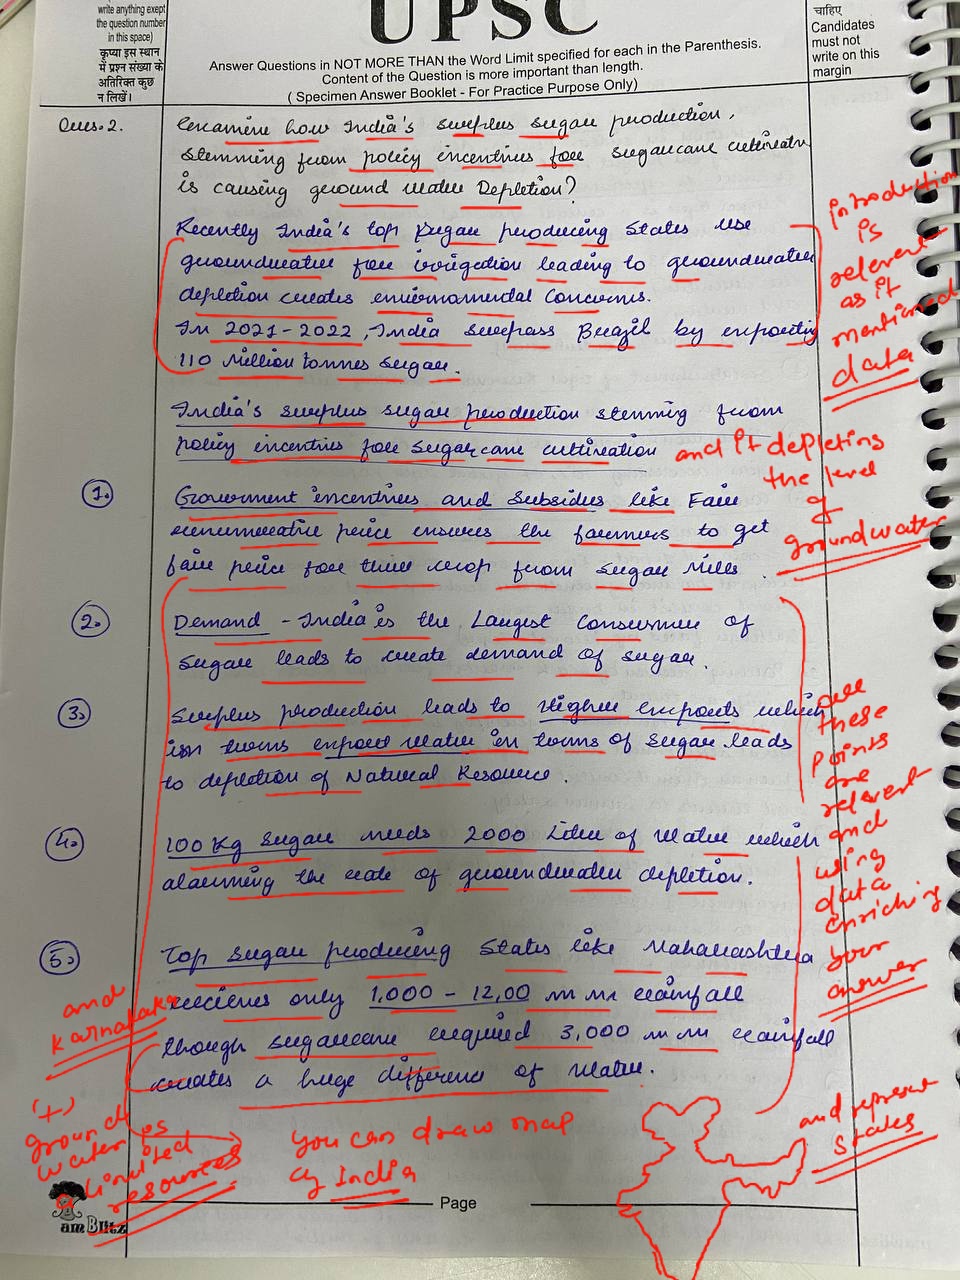 write anything exept
the question number
in this space)
कृप्या इस स्थान
में प्रश्न संख्या के
अतिरिक्त कुछ
न लिखें।
UPSC
Answer Questions in NOT MORE THAN the Word Limit specified for each in the Parenthesis.
Content of the Question is more important than length.
( Specimen Answer Booklet - For Practice Purpose Only)
चाहिए
Candidates
must not
write on this
margin
Ques.2. Examine how India's surplus sugar production,
stemming from policy incentives for sugarcane cultivation
is causing ground water Depletion?
Recently India's top Sugar producing States use
groundwater for irrigation leading to groundwater
depletion creates environmental Concerns.
In 2021-2022, India surpass Brazil by exporting
110 Million tonnes Sugar.
introduction
is
relevent
as it
mentioned
data
India's surplus sugar production stemming from
policy incentives for Sugarcane cultivation and it depleting
the level
of
groundwater
1. Government incentives and Subsidies like Fair
remunerative price ensures the farmers to get
fair price for their crop from Sugar Mills.
2. Demand - India is the Largest Consumer of
Sugar leads to create demand of sugar.
3. Surplus production leads to Higher exports which
in turns export water in terms of Sugar leads
to depletion of Natural Resource.
4. 100 Kg Sugar needs 2000 Liter of Water which
alarming the rate of groundwater depletion.
5. Top Sugar producing States like Maharashtra
recieves only 1,000 - 12,00 m m rainfall
though sugarcane required 3,000 m m rainfall
creates a huge difference of water.
all
these
points
are
relevent
and
using
data
enriching
your
answer
and
Karnataka
(+)
ground
water is
limited
resources
you can draw map
of India
and represent
states
Page
am Blitz